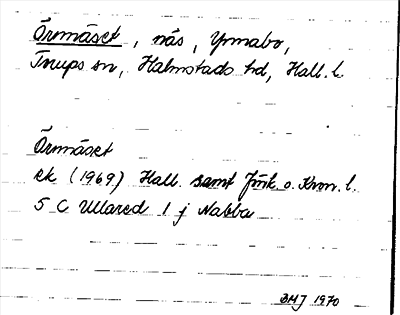 Örnnäset, näs, Yrnabo,
Torups sn, Halmstads hd, Hall. l.
Örnnäset
ek (1969) Hall. samt Jönk o. Kron. l.
5 C Ullared 1 j Nabba
BMJ 1970